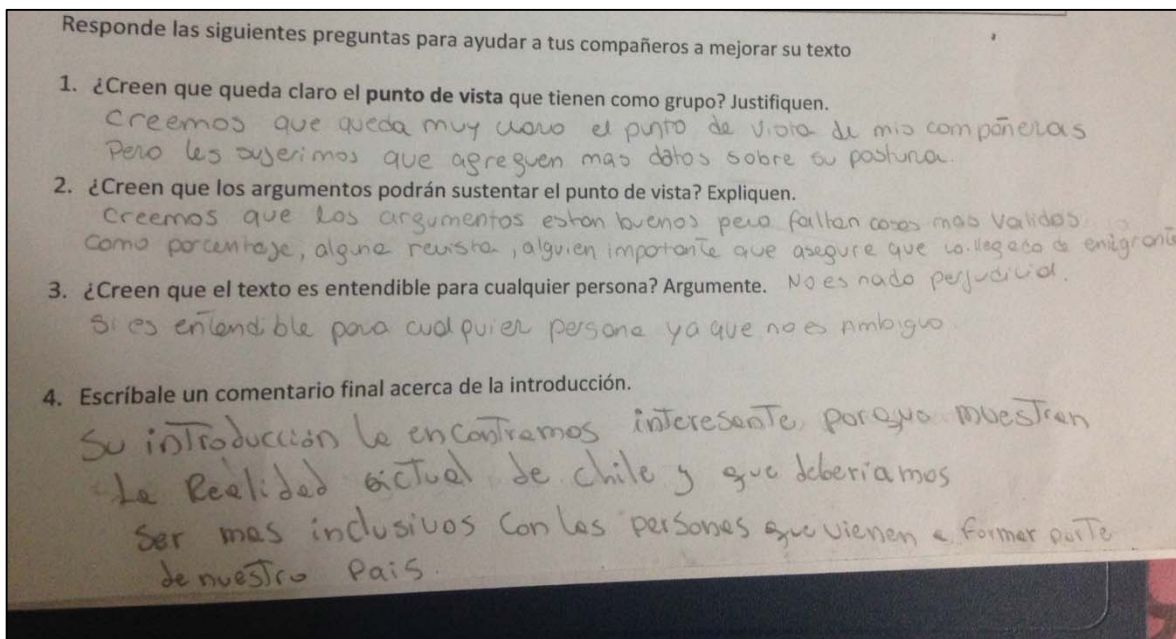 Responde las siguientes preguntas para ayudar a tus compañeros a mejorar su texto
1. ¿Creen que queda claro el punto de vista que tienen como grupo? Justifiquen.
Creemos que queda muy claro el punto de vista de mis compañeras
Pero les sujerimos que agreguen mas datos sobre su postura.
2. ¿Creen que los argumentos podrán sustentar el punto de vista? Expliquen.
Creemos que los argumentos estan buenos pero faltan cosas mas validas
como porcentaje, alguna revista, alguien importante que asegure que la llegada de emigrante
3. ¿Creen que el texto es entendible para cualquier persona? Argumente. No es nada perjudicial.
Si es entendible para cualquier persona ya que no es Ambiguo.
4. Escríbale un comentario final acerca de la introducción.
Su introducción la encontramos interesante, porque muestran
La Realidad actual de chile y que deberiamos
Ser mas inclusivos con las personas que vienen a formar parte
de nuestro Pais.